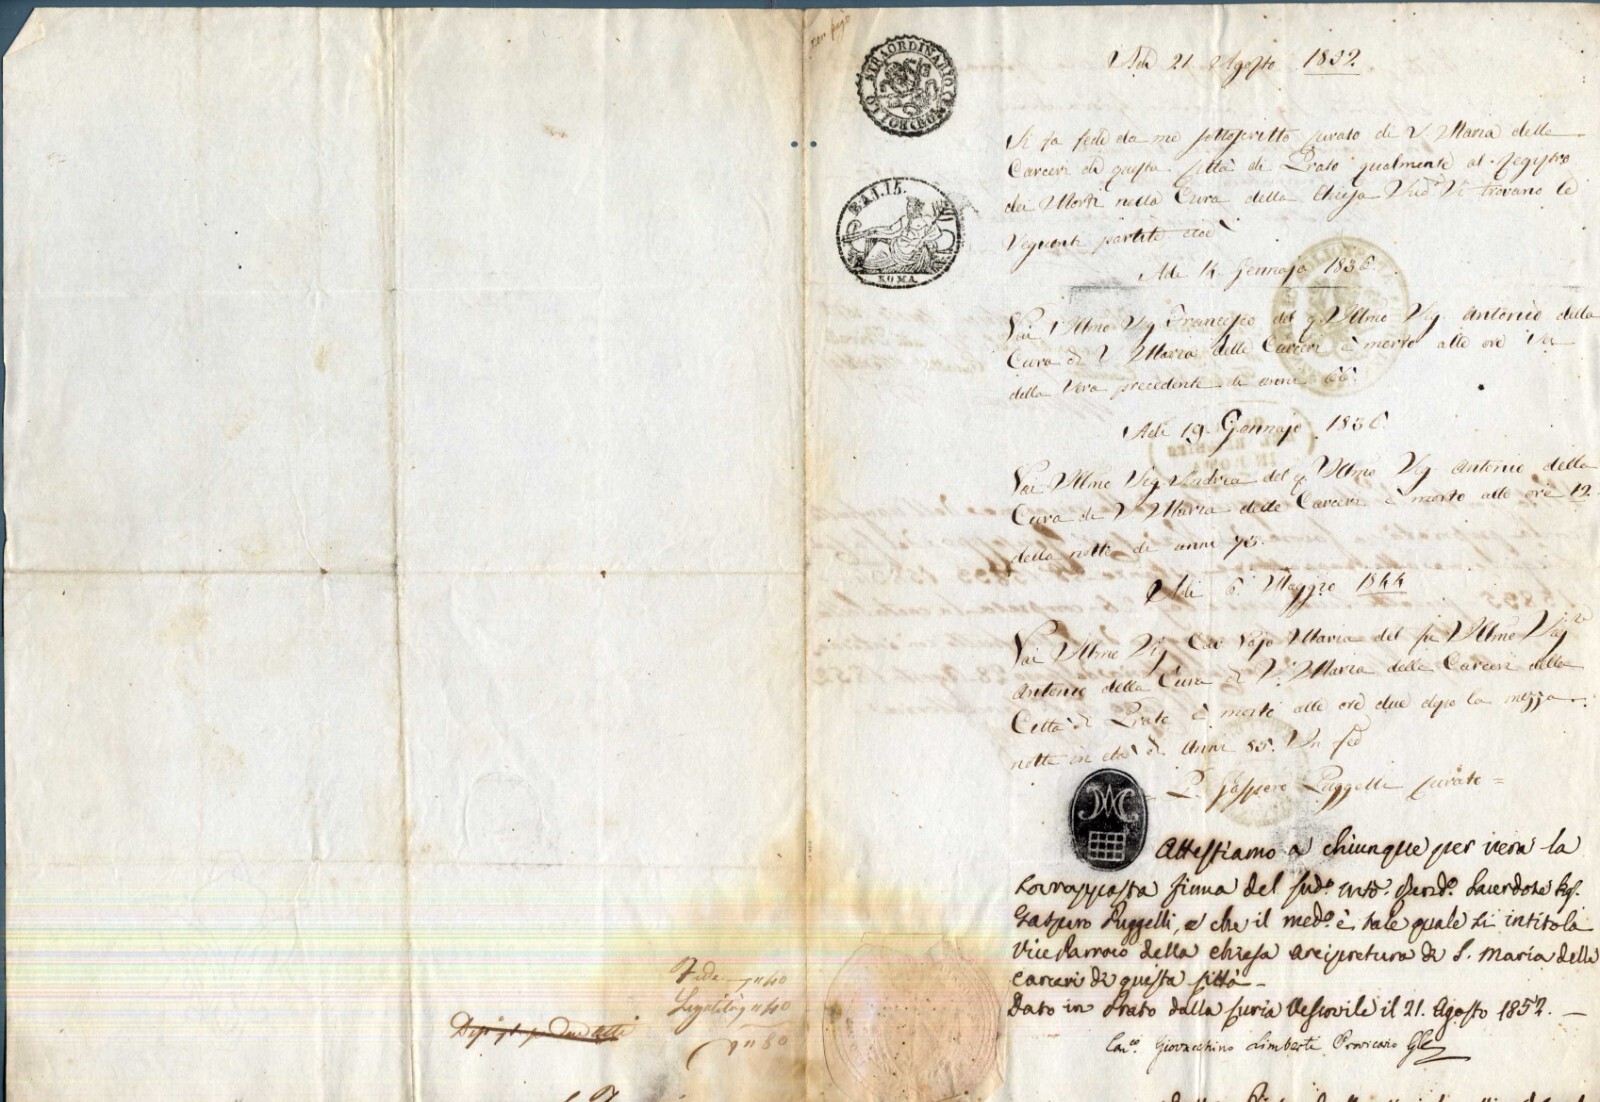 BOLLO STRAORDINARIO
BAJ. 15.
ROMA
Adì 21 Agosto 1852
Si fa fede da me sottoscritto Curato di S. Maria delle
Carceri di questa Città di Prato qualmente al Registro
dei Morti nella Cura della Chiesa Sudª Si trovano le
Seguenti partite cioè
Adì 14. Gennajo 1836.
Illmo Sig Francesco del q. Illmo Sig. Antonio della
Cura di S Maria delle Carceri è morto alle ore
della Sera precedente di anni 66.
Adì 19. Gennajo 1836
Illmo Sig. Andrea del q. Illmo Sig Antonio della
Cura di S Maria delle Carceri è morto alle ore 12
della notte di anni 75.
Adì 6. Maggio 1844
Illmo Sig Cav Maria del fu Illmo Sig
Antonio della Cura di S. Maria delle Carceri della
Città di Prato è morto alle ore due dopo la mezza
notte in età di anni 85. In fed
P. Gaspero Puggelli Curato =
Attestiamo a chiunque per vera la
sovrapposta firma del sudº. Sacerdote
Gaspero Puggelli, e che il medº. è tale quale si intitola
Vice Parroco della chiesa arcipretura di S. Maria delle
Carceri di questa Città
Dato in Prato dalla Curia Vescovile il 21. Agosto 1852.
Canco. Giovacchino Limberti Provicario Gle
Fede "40
"40
"80